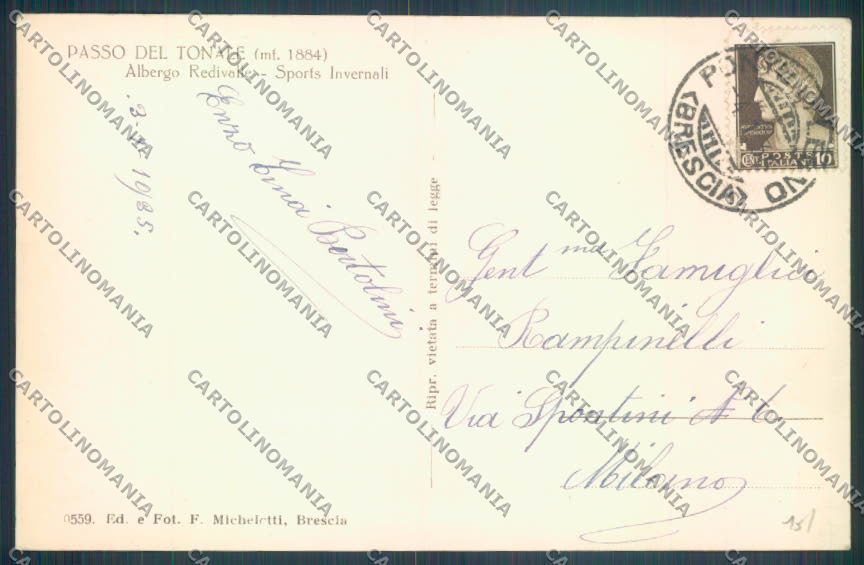 PASSO DEL TONALE (mt. 1884)
Albergo Redivalle - Sports Invernali
1935.
Enzo Tina Bertolini
Ripr. vietata a termini di legge
PONTE DI LEGNO
(BRESCIA)
CENT. POSTE ITALIANE 10
Gent ma Famiglia
Rampinelli
Via Spontini N 6
Milano
0559. Ed. e Fot. F. Micheletti, Brescia
15/
CARTOLINOMANIA